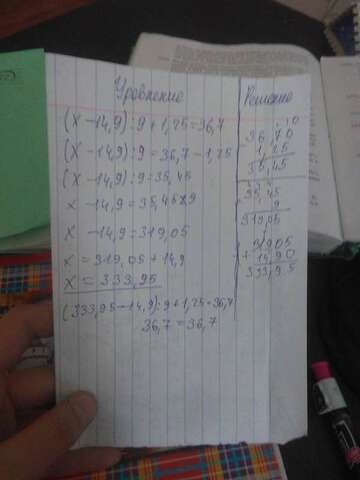 Уравнение
(x - 14,9) : 9 + 1,25 = 36,7
(x - 14,9) : 9 = 36,7 - 1,25
(x - 14,9) : 9 = 35,45
x - 14,9 = 35,45 × 9
x - 14,9 = 319,05
x = 319,05 + 14,9
x = 333,95
(333,95 - 14,9) : 9 + 1,25 = 36,7
36,7 = 36,7
Решение
36,70
1,25
35,45
35,45
9
319,05
+ 14,90
333,95